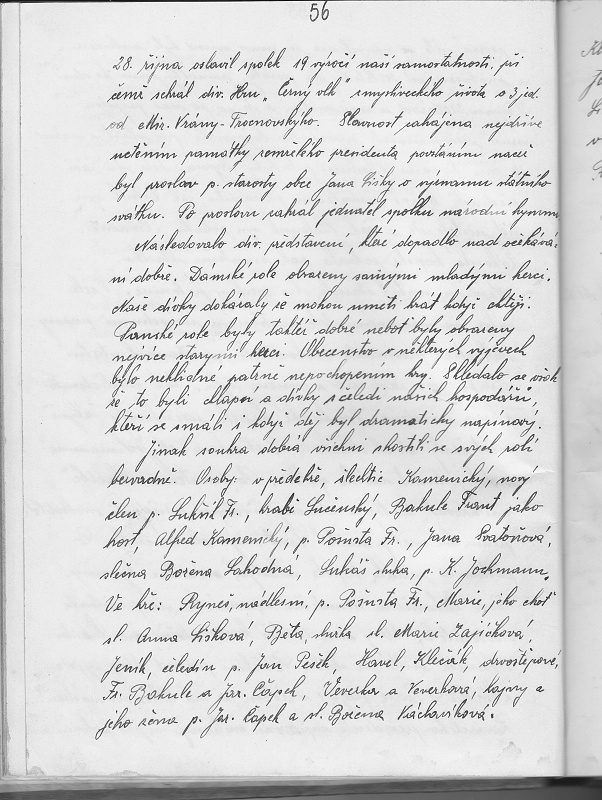 56
28. října oslavil spolek 19 výročí naší samostatnosti, při
čemž sehrál div. Hru „Černý vlk" z mysliveckého života o 3 jed.
od Mir. Vrány-Trocnovského. Slavnost zahájena nejdříve
uctěním památky zemřelého presidenta povstáním načež
byl proslov p. starosty obce Jana Šišky o významu státního
svátku. Po proslovu zahrál jednatel spolku národní hymnu
Následovalo div. představení, které dopadlo nad očekává-
ní dobře. Dámské role obsazeny samými mladými herci.
Naše dívky dokázaly že mohou uměti hrát když chtějí.
Panské role byly taktéž dobré neboť byly obsazeny
nejvíce starými herci. Obecenstvo v některých výjevech
bylo neklidné patrně nepochopením hry. Shledalo se však
že to byli chlapci a dívky z čeledi našich hospodářů,
kteří se smáli i když děj byl dramaticky napínavý.
Jinak souhra dobrá všichni zhostili se svých rolí
bezvadně. Osoby: v předehře, šlechtic Kamenický, nový
člen p. Lukšík Fr., hrabě Lučenský, Bakule Frant jako
host, Alfred Kamenický, p. Pošusta Fr., Jana Svatoňová,
slečna Božena Lahodná, Lukáš sluha, p. K. Jochmann.
Ve hře: Ryneš, nadlesní, p. Pošusta Fr., Marie, jeho choť
sl. Anna Šišková, Běta, služka sl. Marie Zajíčková,
Jeník, čeledín p. Jan Pešek, Havel, Klečák, drvoštěpové,
Fr. Bakule a Jar. Čápek, Veverka a Veverková, hajný a
jeho žena p. Jar. Čapek a sl. Božena Váchavíková.